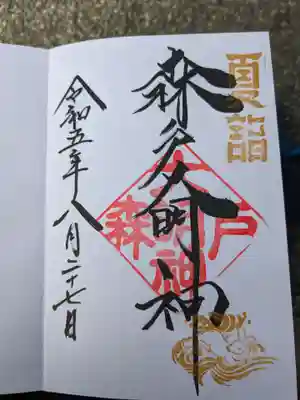 夏詣
森戸大明神
森戸大明神
令和五年八月二十七日